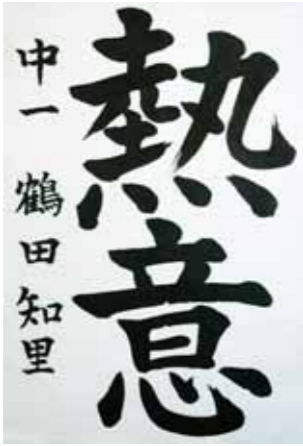 熱意
中一 鶴田知里